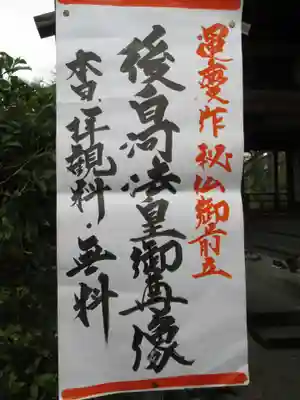 運慶作 秘仏御前立
後白河法皇御尊像
本日拝観料・無料